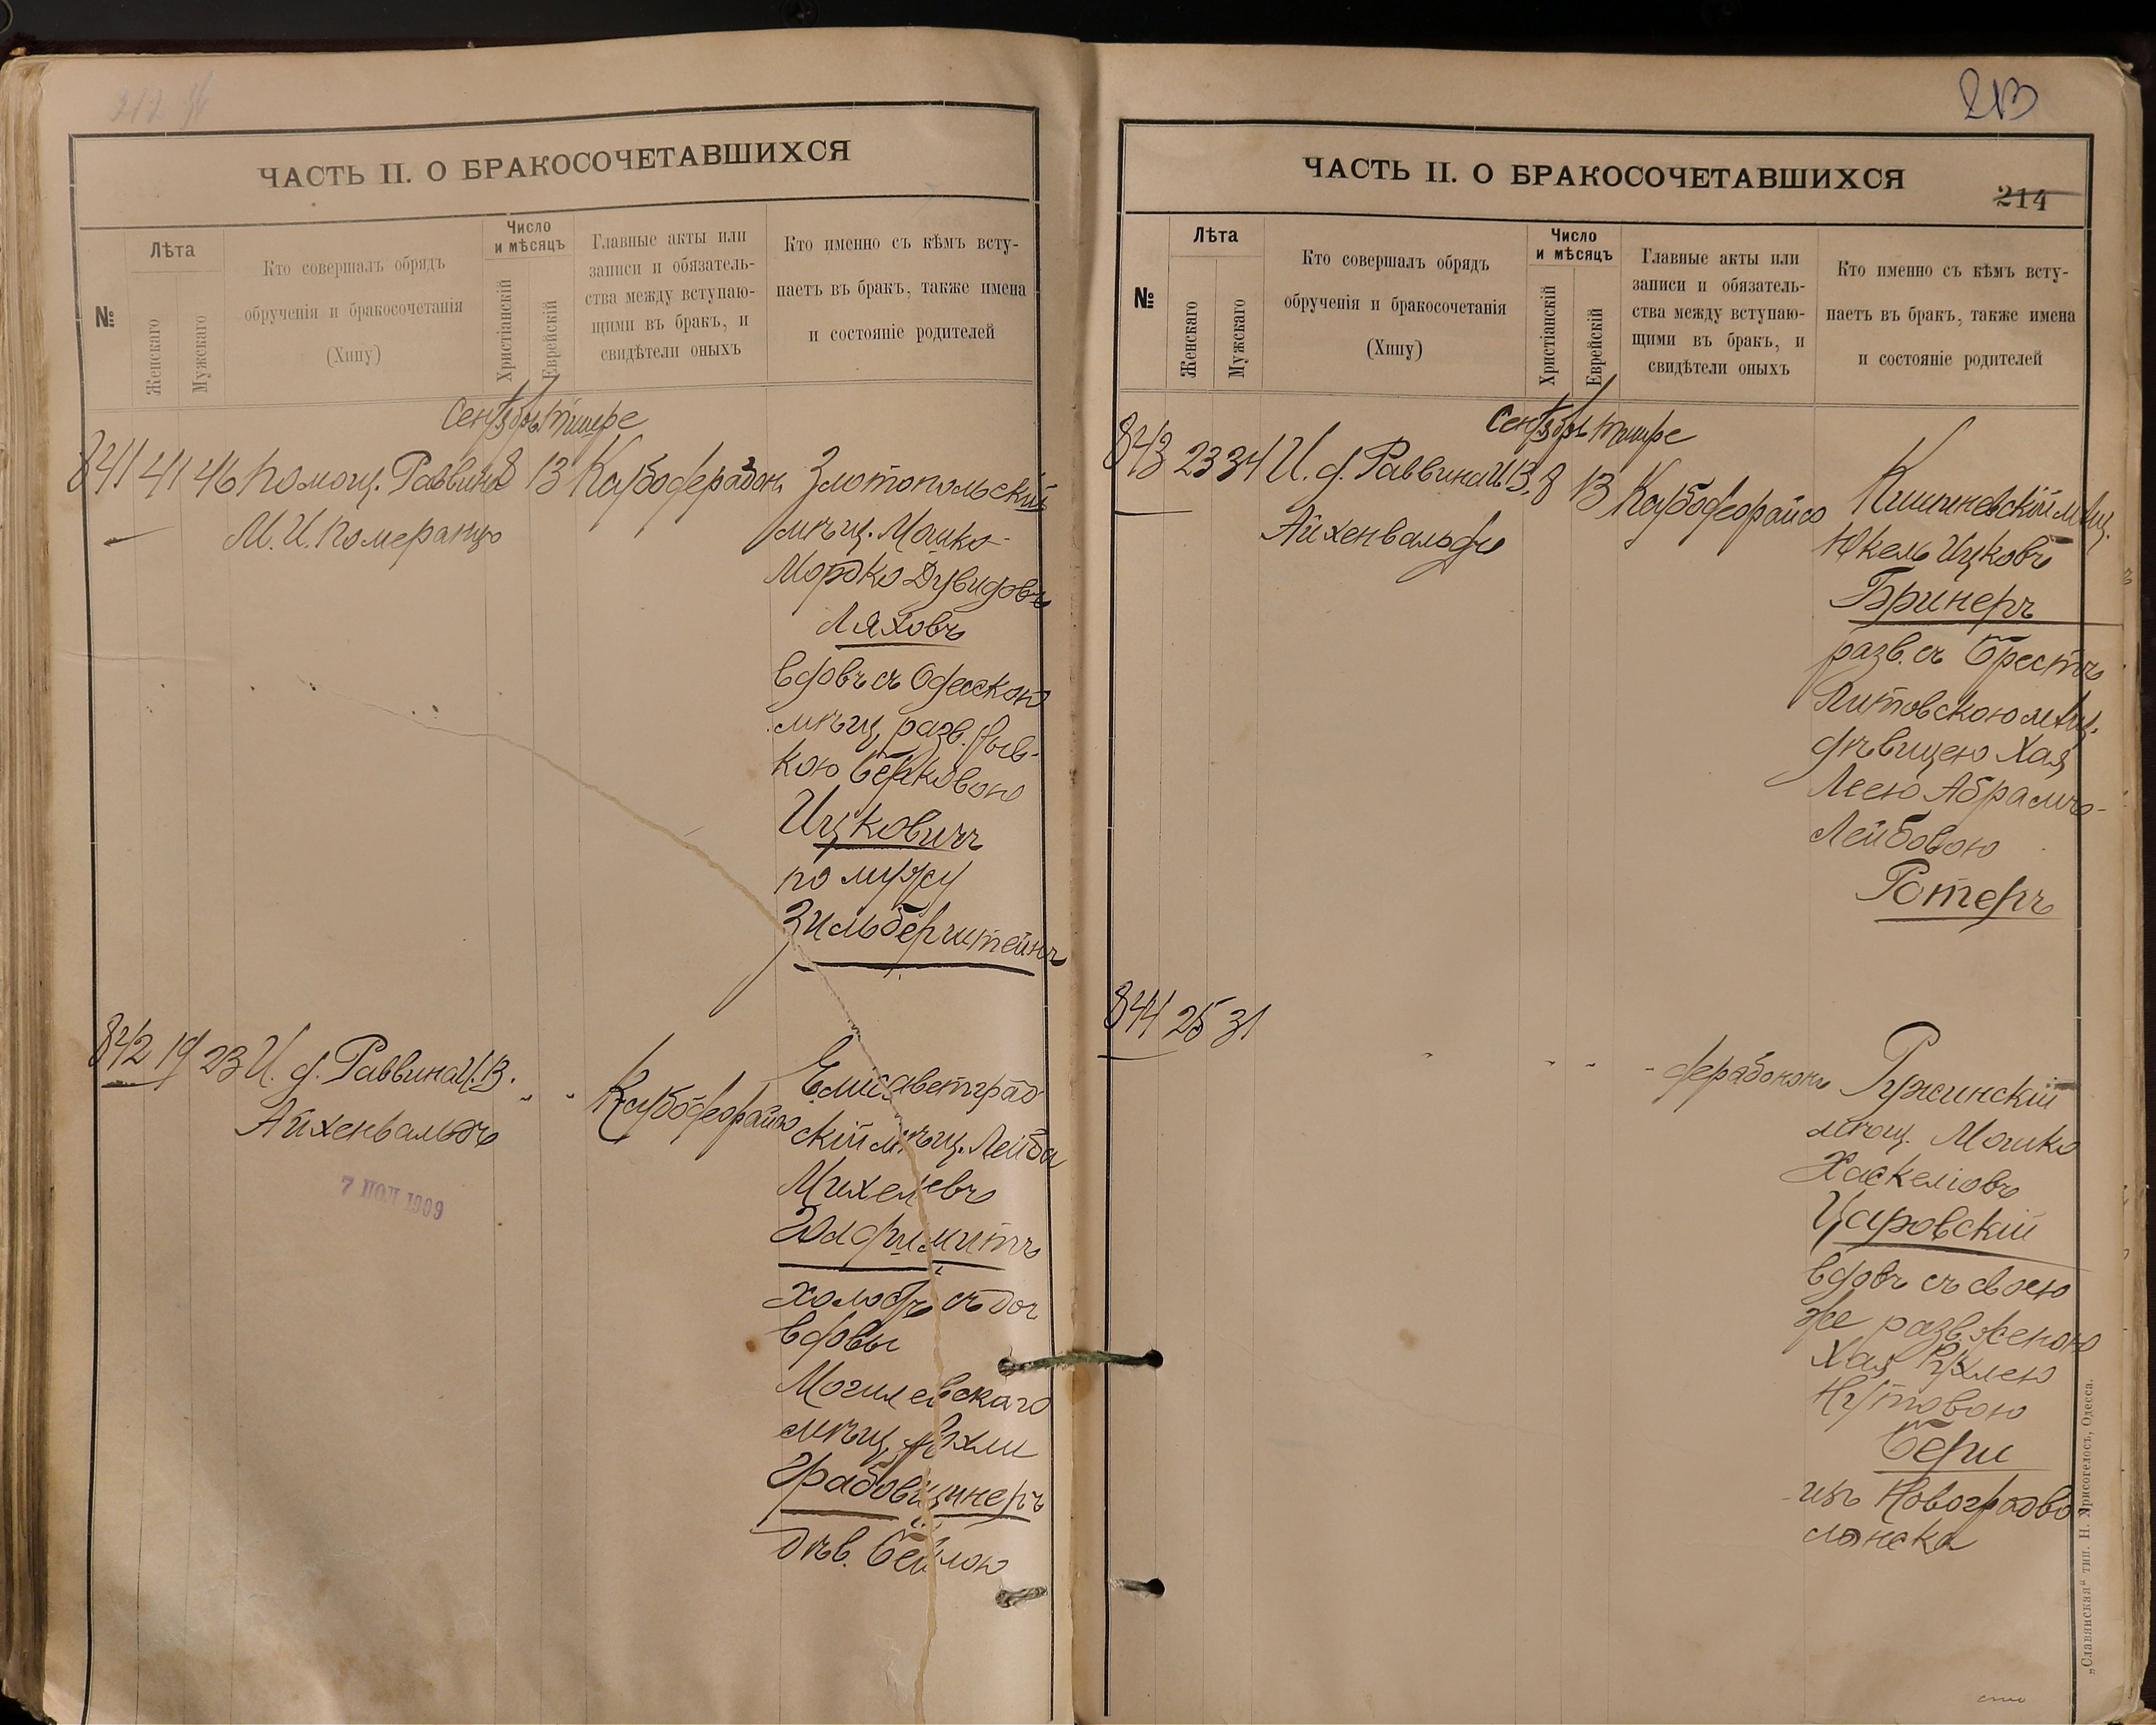 ЧАСТЬ II. О БРАКОСОЧЕТАВШИХСЯ
№
Лѣта
Женскаго
Мужскаго
Кто совершалъ обрядъ
обрученія и бракосочетанія
(Хипу)
Число
и мѣсяцъ
Христіанскій
Еврейскій
Главные акты или
записи и обязатель-
ства между вступаю-
щими въ бракъ, и
свидѣтели оныхъ
Кто именно съ кѣмъ всту-
паетъ въ бракъ, также имена
и состояніе родителей
Сентябрь Тишре
841 41 46 Помощ. Раввина 8 13
М. И. Померанцъ
Злотопольскій
мѣщ. Мошко-
Мордко Дувидовъ
Ляховъ
вдовъ съ Одесскою
мѣщ. разв. Рив-
кою Берковою
Ицковичъ
по мужу
Зильберштейнъ
842 19 23 И. д. Раввина И. В.
Айхенвальдъ
7 ИЮЛ 1909
Елисаветград-
скій мѣщ. Лейба
Михелевъ
холостъ съ доч
вдовы
Могилевскаго
мѣщ. Рухли
Грабовщинеръ
дѣв. Бейлою
213
ЧАСТЬ II. О БРАКОСОЧЕТАВШИХСЯ
214
№
Лѣта
Женскаго
Мужскаго
Кто совершалъ обрядъ
обрученія и бракосочетанія
(Хипу)
Число
и мѣсяцъ
Христіанскій
Еврейскій
Главные акты или
записи и обязатель-
ства между вступаю-
щими въ бракъ, и
свидѣтели оныхъ
Кто именно съ кѣмъ всту-
паетъ въ бракъ, также имена
и состояніе родителей
Сентябрь Тишре
843 23 34 И. д. Раввина И. В. 8 13
Айхенвальдъ
Кишиневскій мѣщ.
Юкель Ицковъ
Бринеръ
разв. съ Брестъ
Литовскою мѣщ.
дѣвицею Хая
Леею Абрамъ-
Лейбовою
Ротеръ
844 25 31
Ружинскій
мѣщ. Мошко
Хаскеліовъ
Царовскій
вдовъ съ своею
же разв. женою
Хая Рухлею
Нутовою
Бери
„Славянская“ тип. Н. Хрисогелосъ, Одесса.